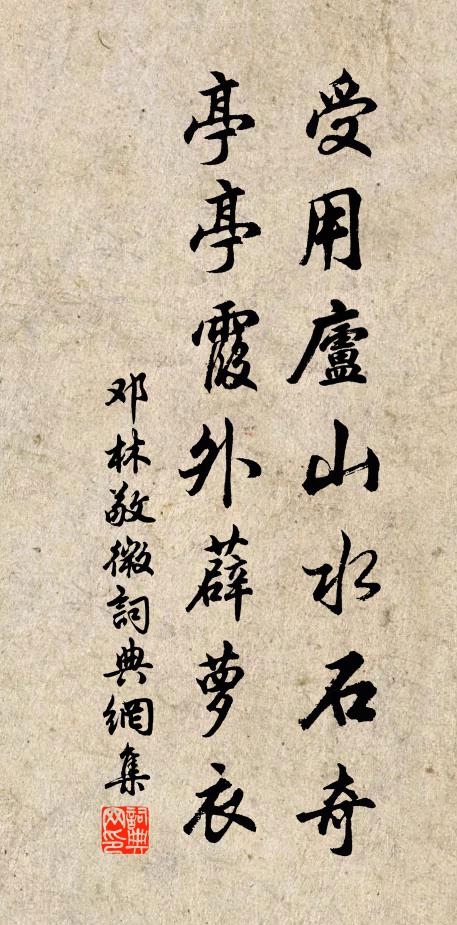 受用廬山水石奇
亭亭霞外薜萝衣
邓林敬微詞典網集
詞典
网印